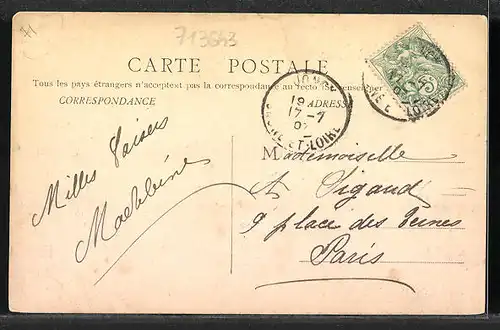 713643
CARTE POSTALE
Tous les pays étrangers n'acceptent pas la correspondance au recto (se renseigner
CORRESPONDANCE
ADRESSE
JONCY
19
17-7
07
SAONE-ET-LOIRE
Milles Baisers
Madeleine
Mademoiselle
A Sigaud
9 place des
Paris